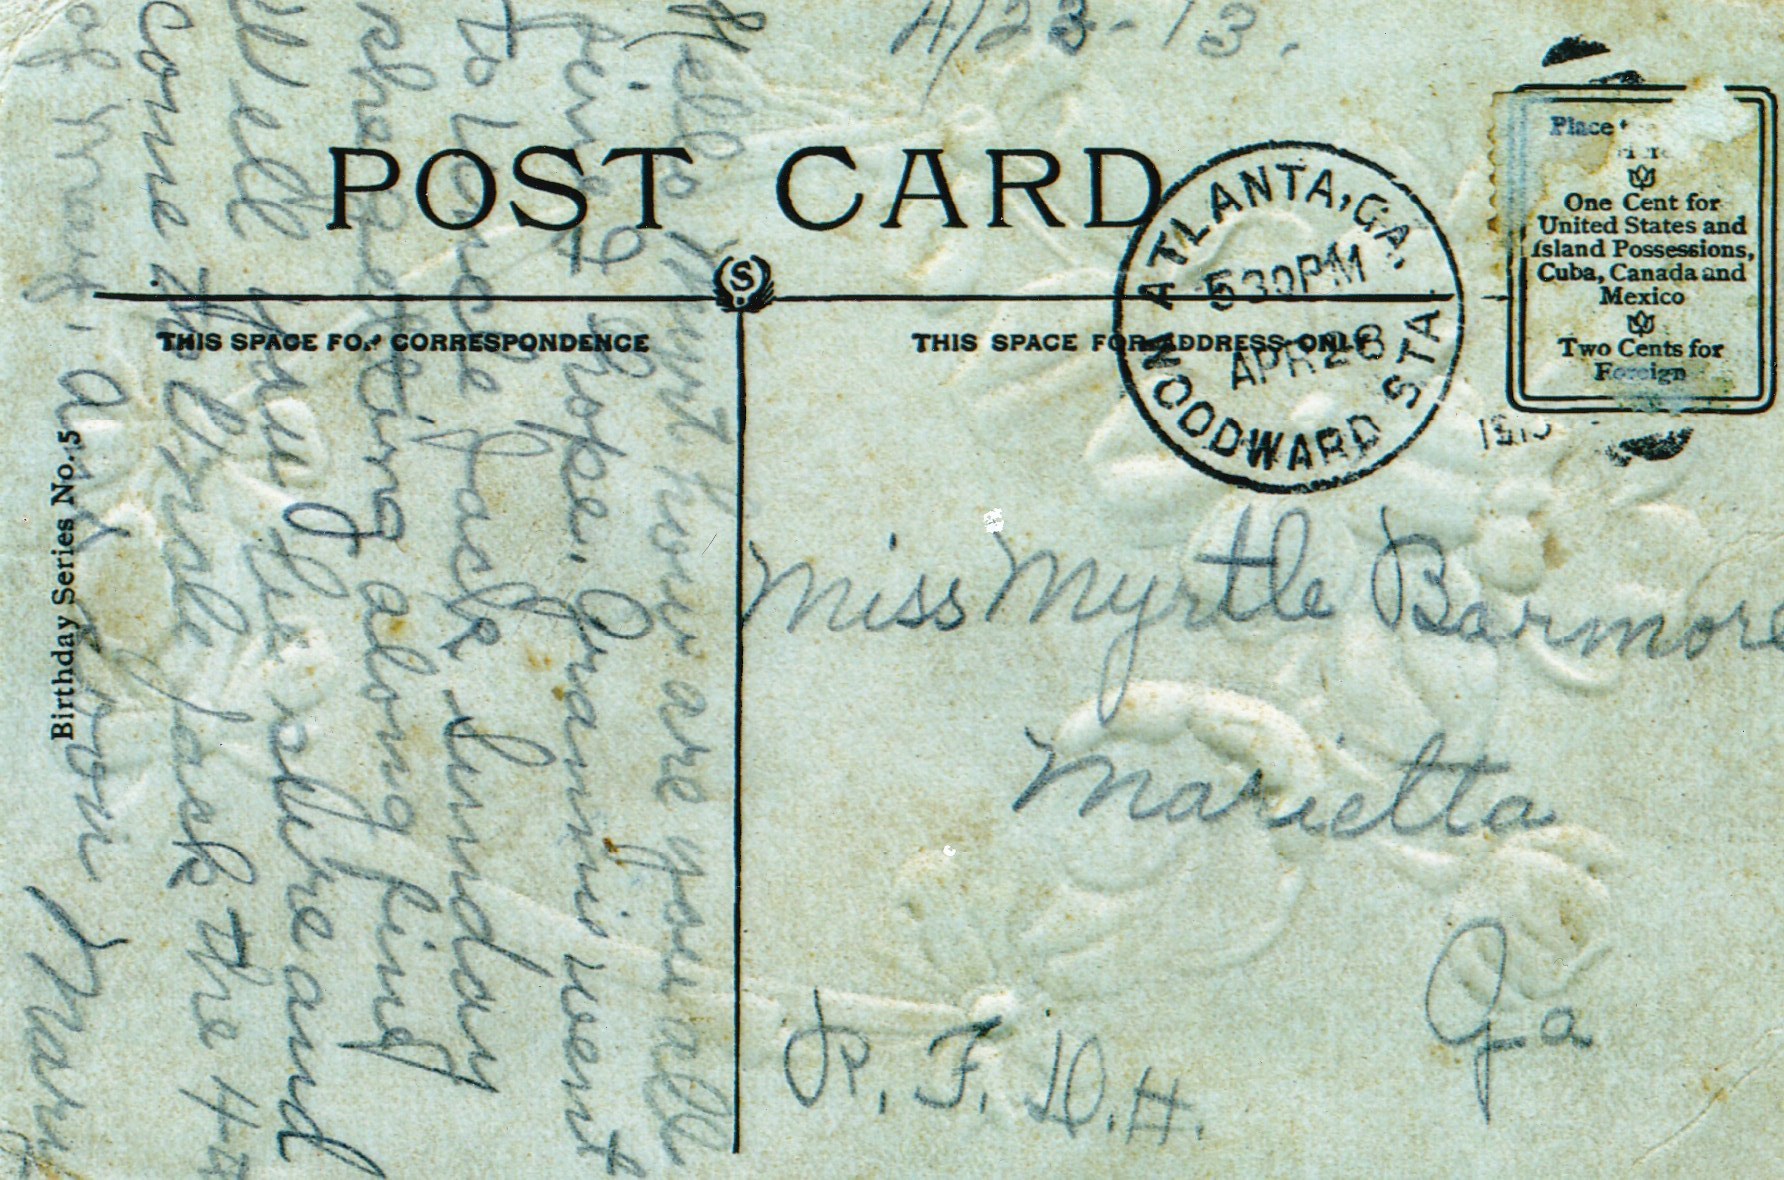 4/23-13.
POST CARD
ATLANTA, GA.
530PM
APR 23
1913
WOODWARD STA.
Place
Here
One Cent for
United States and
Island Possessions,
Cuba, Canada and
Mexico
Two Cents for
Foreign
S
THIS SPACE FOR CORRESPONDENCE
THIS SPACE FOR ADDRESS ONLY
Miss Myrtle Barmore
Marietta
Ga
R. F. D.
Hello Myrt how are you all
fine I hope. Grannie went
to Jack's Sunday
she getting along fine
Well you shure and
come Jack the 4
of May, and Mary
Birthday Series No. 5